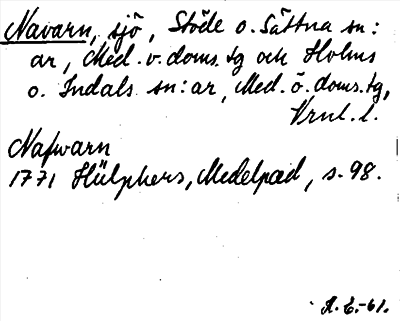 Navarn, sjö, Stöde o. Sättna sn:
ar, Med. v. doms. tg och Holms
o. Indals sn:ar, Med. ö. doms. tg,
Vrnl. l.
Nafwarn
1771 Hülphers, Medelpad, s. 98.
A.E.-61.